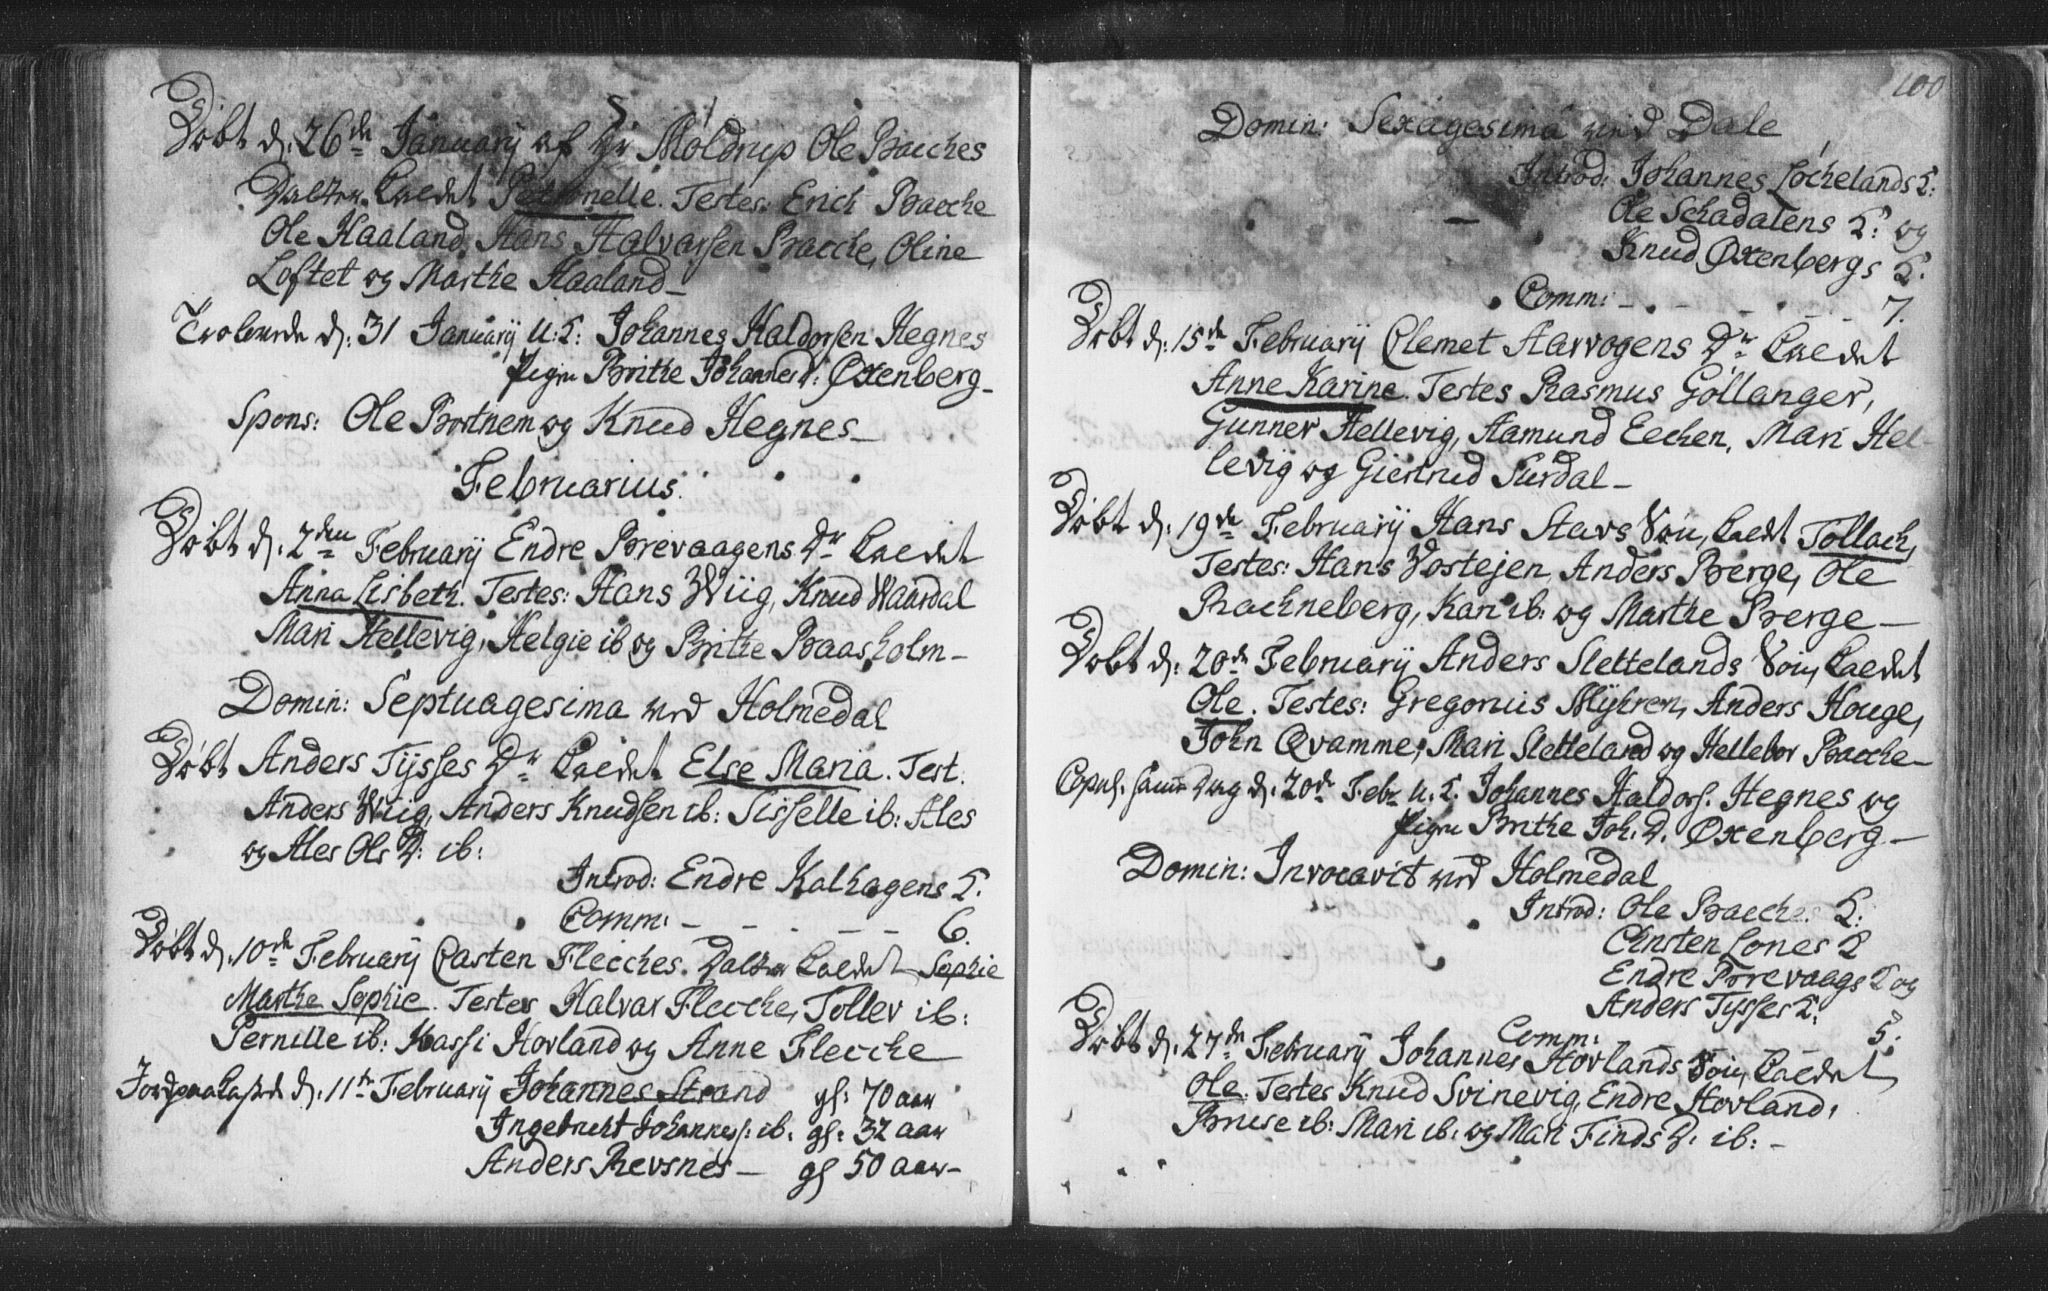 Döbt d: 26de Januarij af Hr Moldrup Ole Bacches
Datter kaldet Petronelle. Testes: Erich Bacche
Ole Haaland, Hans Halvarsen Bacche, Oline
Loftet og Marthe Haaland_
Trolovede d: 31 Januarij U:K: Johannes Haldorsen Hegnes
Pigen Brithe Johannesd: Øxenberg_
Spons: Ole Bortnem og Knud Hegnes_
Februarius.
Döbt d: 2den Februarij Endre Brevaagens Dr kaldet
Anna Lisbeth. Testes: Hans Wiig, Knud Waardal
Mari Hellevig, Helgie ib og Brithe Baasholm_
Domin: Septuagesima ved Holmedal
Döbt Anders Tysses Dr kaldet Else Maria. Test.
Anders Wiig, Anders Knudsen ib: Sisselle ib: Ales
og Ales Ols D: ib:
Introd: Endre Kalhagens K:
Comm: - - - - - 6.
Döbt d: 10de Februarij Casten Flecches Datter kaldet Sophie
Marthe Sophie. Testes Halvar Flecche, Tollev ib:
Pernille ib: Kassi Hovland og Anne Flecche
Jordpaakastede d: 11te Februarij Johannes Strand gl: 70 aar
Ingebricht Johannes: ib. gl: 32 aar
Anders Revsnes_ gl 50 aar_
100
Domin: Sexagesima ved Dale
Introd: Johannes Løchelands K:
Ole Schadalens K: og
Knud Øxenbergs K:
Comm: - - - - - 7.
Döbt d: 15de Februarij Clemet Aarvogens Dr kaldet
Anne Karine. Testes Rasmus Göllanger,
Gunner Hellevig, Aamund Eechen, Mari Hel-
levig og Giertrud Surdal_
Döbt d: 19de Februarij Hans Stavs Sön, kaldt Tollach,
Testes: Hans Tostejen, Anders Berge, Ole
Rachneberg, Kari ib: og Marthe Berge_
Döbt d: 20de Februarij Anders Slettelands Sön, kaldet
Ole. Testes: Gregorius Myhren, Anders Houge,
John Qvamme, Mari Sletteland og Hellebor Bacche_
Copul. samme Dag d: 20de Febr U. K. Johannes Haldors. Hegnes og
Pigen Brithe Joh: D. Øxenberg_
Domin: Invocavit ved Holmedal
Introd: Ole Bacches K:
Christen Lones K
Endre Brevaags K og
Anders Tysses K:
Comm: 5.
Döbt d: 27de Februarij Johannes Hovlands Sön, kaldet
Ole. Testes Knud Svinevig, Endre Hovland,
Bruse ib: Mari ib: og Mari Finds D: ib: -